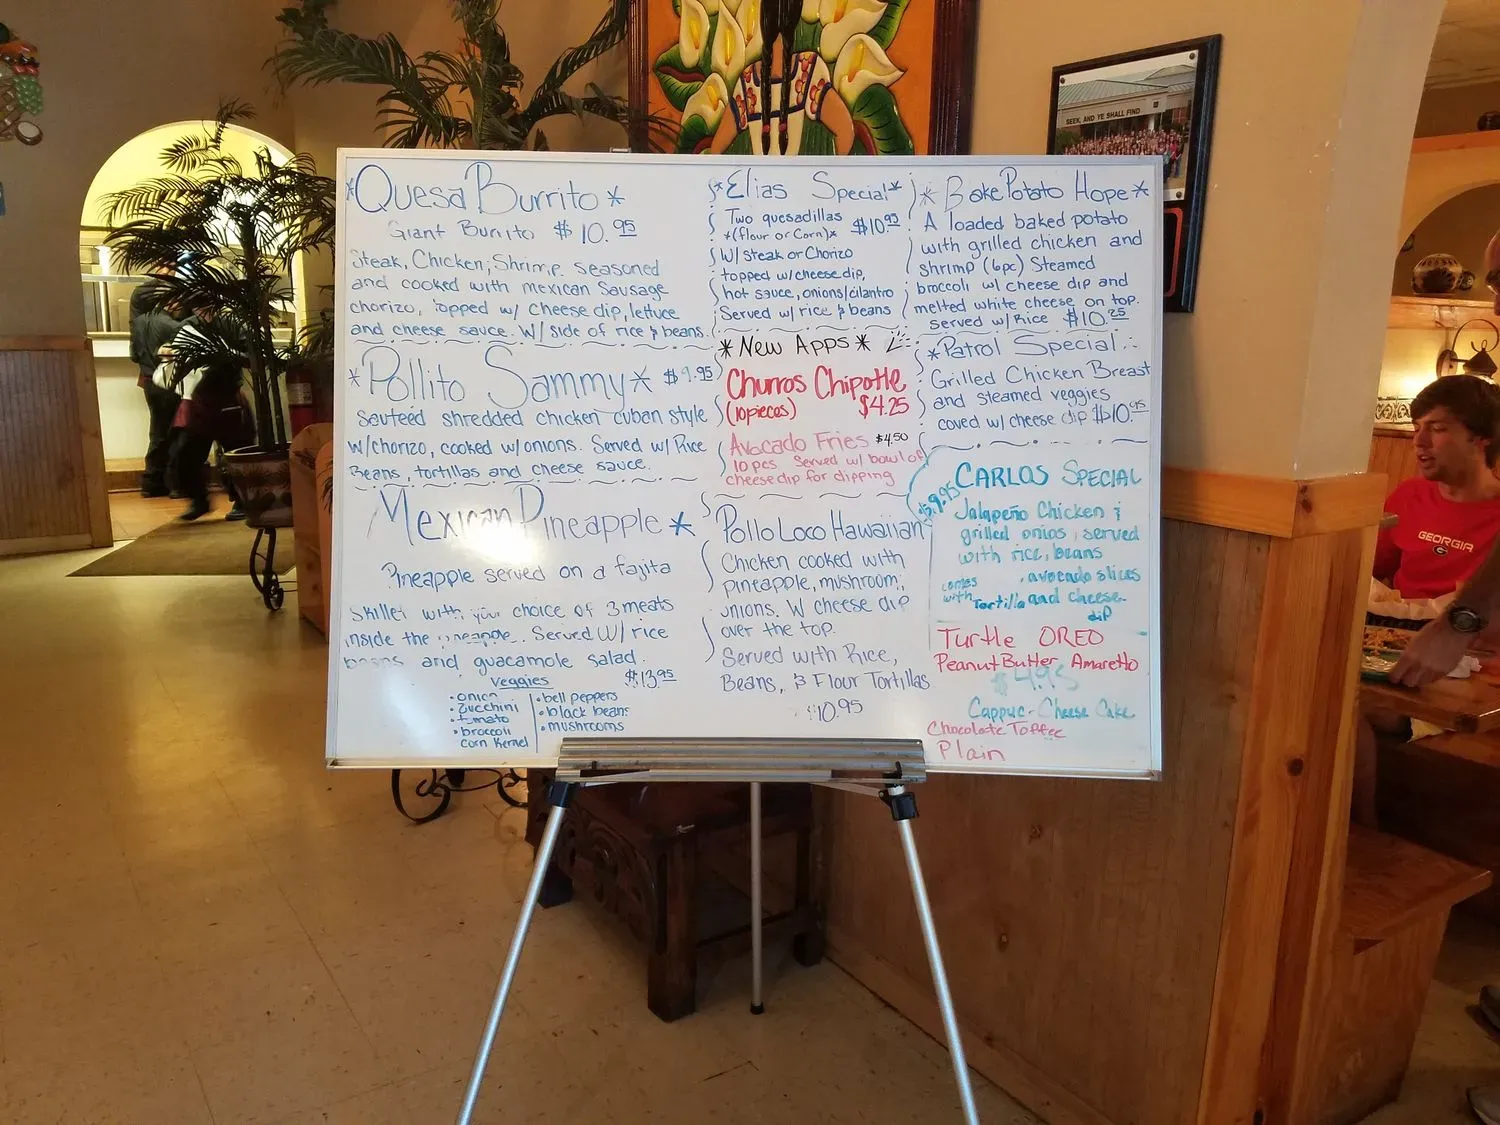 *Quesa Burrito*
Giant Burrito $10.95
Steak, Chicken, Shrimp seasoned
and cooked with mexican Sausage
chorizo, topped w/ cheese dip, lettuce
and cheese sauce. W/ side of rice & beans.
*Pollito Sammy* $9.95
Sauteed shredded chicken cuban style
w/chorizo, cooked w/onions. Served w/ Rice
Beans, tortillas and cheese sauce.
Mexican Pineapple*
Pineapple served on a fajita
skillet with your choice of 3 meats
inside the pineapple. Served W/ rice
beans and guacamole salad.
Veggies $13.95
• onion
• zucchini
• tomato
• broccoli
corn kernel
• bell peppers
• black beans
• mushrooms
*Elias Special*
Two quesadillas $10.95
*(flour or Corn)*
W/steak or Chorizo
topped w/cheese dip,
hot sauce, onions/cilantro
Served w/ rice & beans
*New Apps*
Churros Chipotle
(10pieces) $4.25
Avocado Fries $4.50
10 pcs Served w/ bowl of
cheese dip for dipping
Pollo Loco Hawaiian
Chicken cooked with
pineapple, mushroom,
onions. W cheese dip
over the top.
Served with Rice,
Beans, & Flour Tortillas
$10.95
*Bake Potato Hope*
A loaded baked potato
with grilled chicken and
shrimp (6pc) Steamed
broccoli w/ cheese dip and
melted white cheese on top.
served w/Rice $10.25
*Patrol Special
Grilled Chicken Breast
and steamed veggies
coved w/ cheese dip $10.95
$9.95 CARLOS SPECIAL
Jalapeño Chicken &
grilled onios, served
with rice, beans
, avocado slices
comes with Tortilla and cheese
dip
Turtle OREO
Peanut Butter Amaretto
$4.95
Cappuc-Cheese Cake
Chocolate Toffee
Plain
SEEK, AND YE SHALL FIND
GEORGIA
G